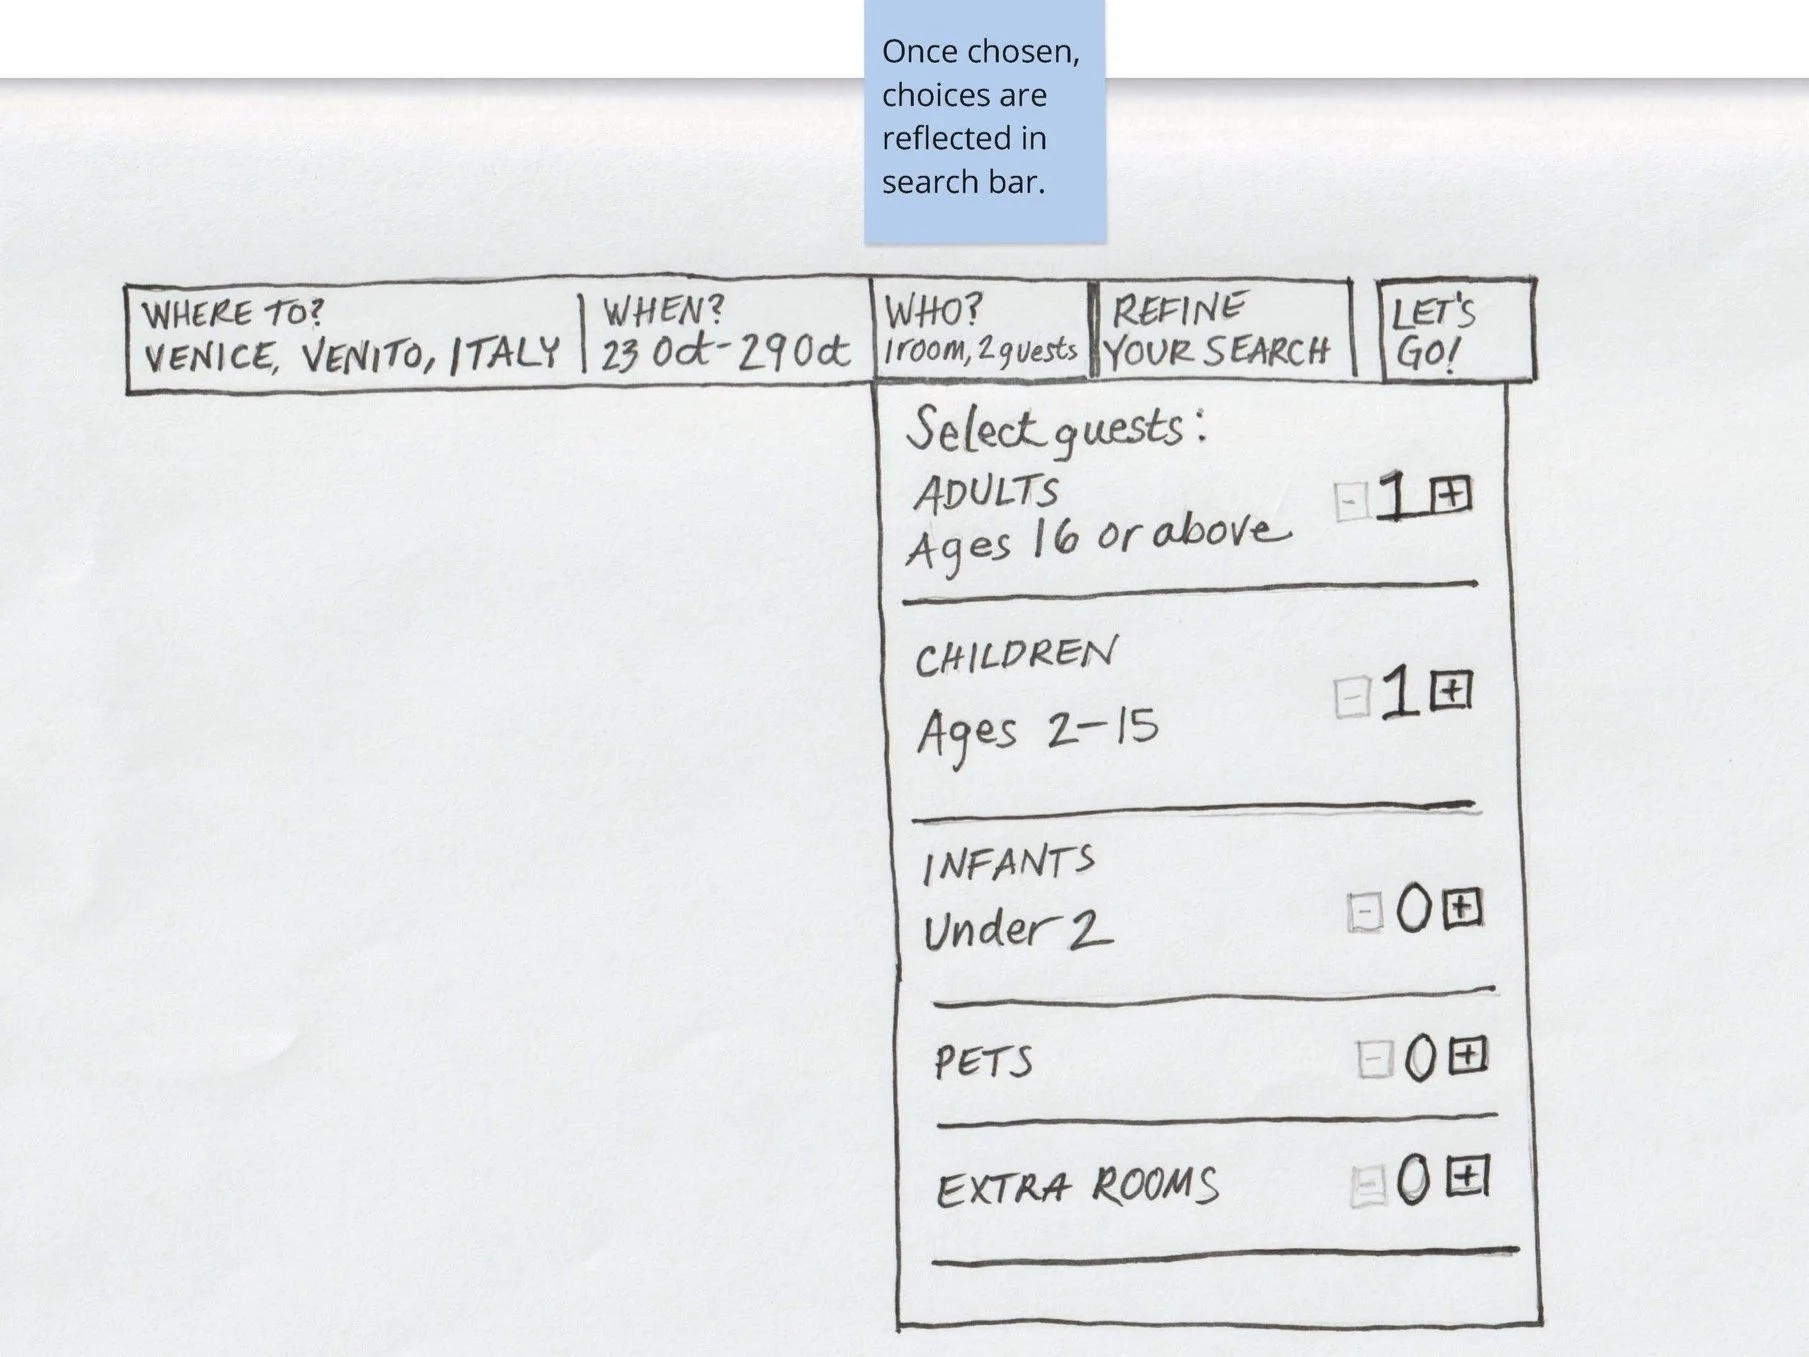 Once chosen,
choices are
reflected in
search bar.
WHERE TO?
VENICE, VENITO, ITALY
WHEN?
23 Oct - 29 Oct
WHO?
1 room, 2 guests
REFINE
YOUR SEARCH
LET'S
GO!
Select guests:
ADULTS
Ages 16 or above
- 1 +
CHILDREN
Ages 2-15
- 1 +
INFANTS
Under 2
- 0 +
PETS
- 0 +
EXTRA ROOMS
- 0 +